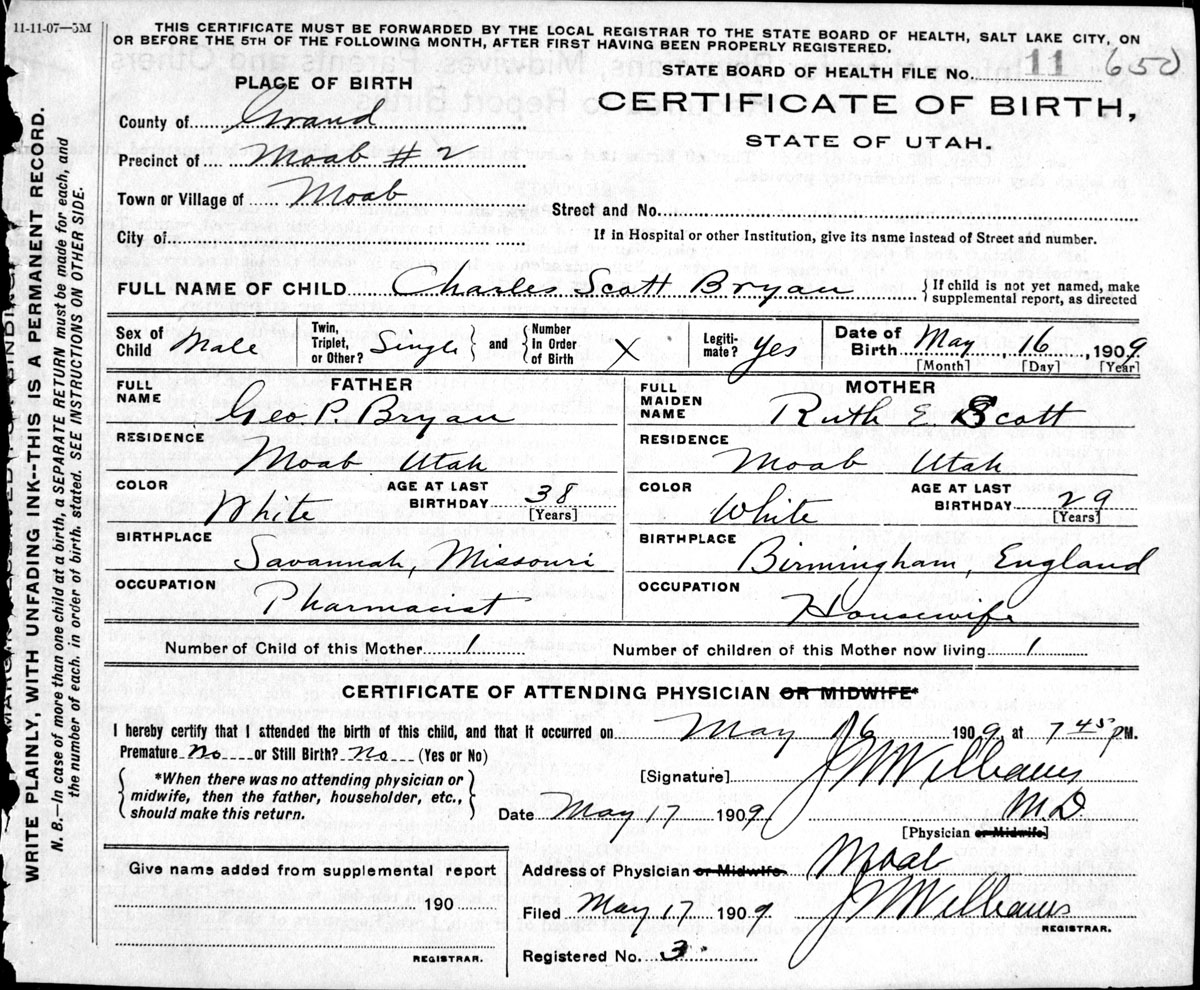 11-11-07—5M
THIS CERTIFICATE MUST BE FORWARDED BY THE LOCAL REGISTRAR TO THE STATE BOARD OF HEALTH, SALT LAKE CITY, ON
OR BEFORE THE 5TH OF THE FOLLOWING MONTH, AFTER FIRST HAVING BEEN PROPERLY REGISTERED.
STATE BOARD OF HEALTH FILE No. 11 650
PLACE OF BIRTH
CERTIFICATE OF BIRTH,
STATE OF UTAH.
County of Grand
Precinct of Moab #2
Town or Village of Moab
Street and No.
City of
If in Hospital or other Institution, give its name instead of Street and number.
FULL NAME OF CHILD Charles Scott Bryan { If child is not yet named, make
supplemental report, as directed
Sex of Child Male
Twin, Triplet, or Other? Single } and { Number In Order of Birth X
Legiti- mate? yes
Date of Birth May, 16, 1909
[Month] [Day] [Year]
FATHER
FULL NAME Geo. P. Bryan
RESIDENCE Moab Utah
COLOR White AGE AT LAST BIRTHDAY 38 [Years]
BIRTHPLACE Savannah, Missouri
OCCUPATION Pharmacist
MOTHER
FULL MAIDEN NAME Ruth E. Scott
RESIDENCE Moab Utah
COLOR White AGE AT LAST BIRTHDAY 29 [Years]
BIRTHPLACE Birmingham, England
OCCUPATION Housewife
Number of Child of this Mother 1 Number of children of this Mother now living 1
CERTIFICATE OF ATTENDING PHYSICIAN OR MIDWIFE*
I hereby certify that I attended the birth of this child, and that it occurred on May 16 1909, at 7 45 P M.
Premature No or Still Birth? No (Yes or No)
{ *When there was no attending physician or
midwife, then the father, householder, etc.,
should make this return. }
[Signature] J W Williams
M.D.
Date May 17 1909
[Physician or Midwife]
Address of Physician or Midwife. Moab
Filed May 17 1909 J W Williams
REGISTRAR.
Registered No. 3
Give name added from supplemental report
190
REGISTRAR.
WRITE PLAINLY, WITH UNFADING INK--THIS IS A PERMANENT RECORD.
N. B.—In case of more than one child at a birth, a SEPARATE RETURN must be made for each, and
the number of each, in order of birth, stated. SEE INSTRUCTIONS ON OTHER SIDE.